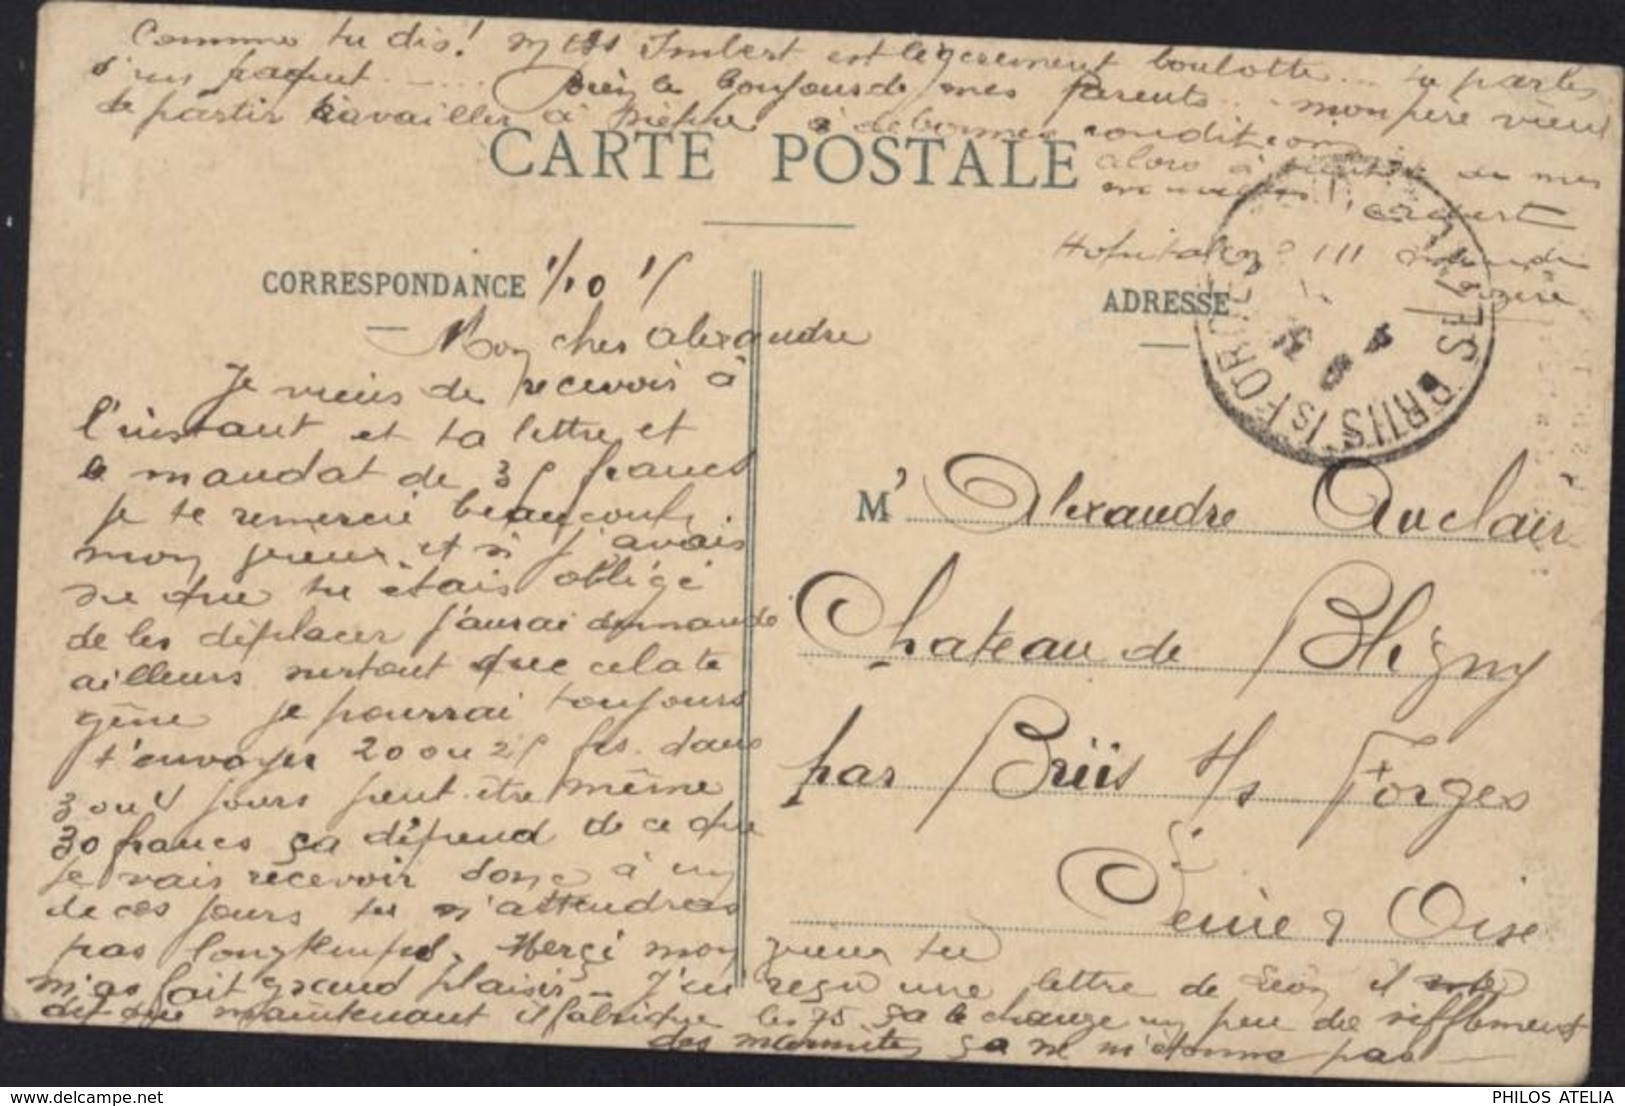 Comme tu dis! Imbert est légèrement boulotte... tu parles
d'un paquet ..... bien le bonjour de mes Parents... mon père vient
de partir travailler à Dieppe à de bonnes conditions
alors à bientôt de mes
nouvelles
Hopital 111
CARTE POSTALE
CORRESPONDANCE 1/10 15
Mon cher Alexandre
Je viens de recevoir à
l'instant et ta lettre et
le mandat de 35 francs
je te remercie beaucoup
mon vieux et si j'avais
su que tu étais obligé
de les déplacer j'aurai demandé
ailleurs surtout que cela te
gêne je pourrai toujours
t'envoyer 20 ou 25 frs. dans
3 ou 4 jours peut-être même
30 francs ça dépend de ce que
je vais recevoir donc à un
de ces jours tu n'attendras
pas longtemps. Merçi mon vieux tu
m'as fait grand plaisir – J'ai reçu une lettre de Léon il
dit que maintenant il fabrique les 75 ça le change un peu du sifflement
des marmites ça ne m'étonne pas —
ADRESSE
BRIIS Is FORGES SEINE
M' Alexandre Auclair
Chateau de Bligny
par Briis s/s Forges
Seine & Oise
PHILOS ATELIA